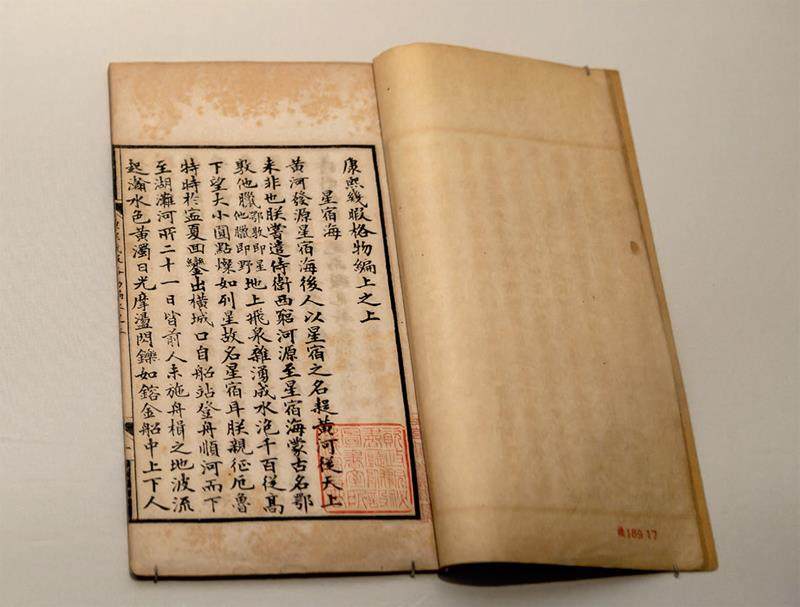 康熙幾暇格物編上之上
星宿海
黃河發源星宿海後人以星宿之名疑黃河從天上
來非也朕嘗遣侍衛西窮河源至星宿海蒙古名鄂
敦他臘鄂敦即星他臘即野地上飛泉雜湧成水泡千百從高
下望大小圓點燦如列星故名星宿耳朕親征厄魯
特時於寧夏西鑾出橫城口自船站登舟順河而下
至湖灘河所二十一日皆前人未施舟楫之地波流
起瀚水色黃濁日光摩盪閃鑠如鎔金船中上下人
189 17